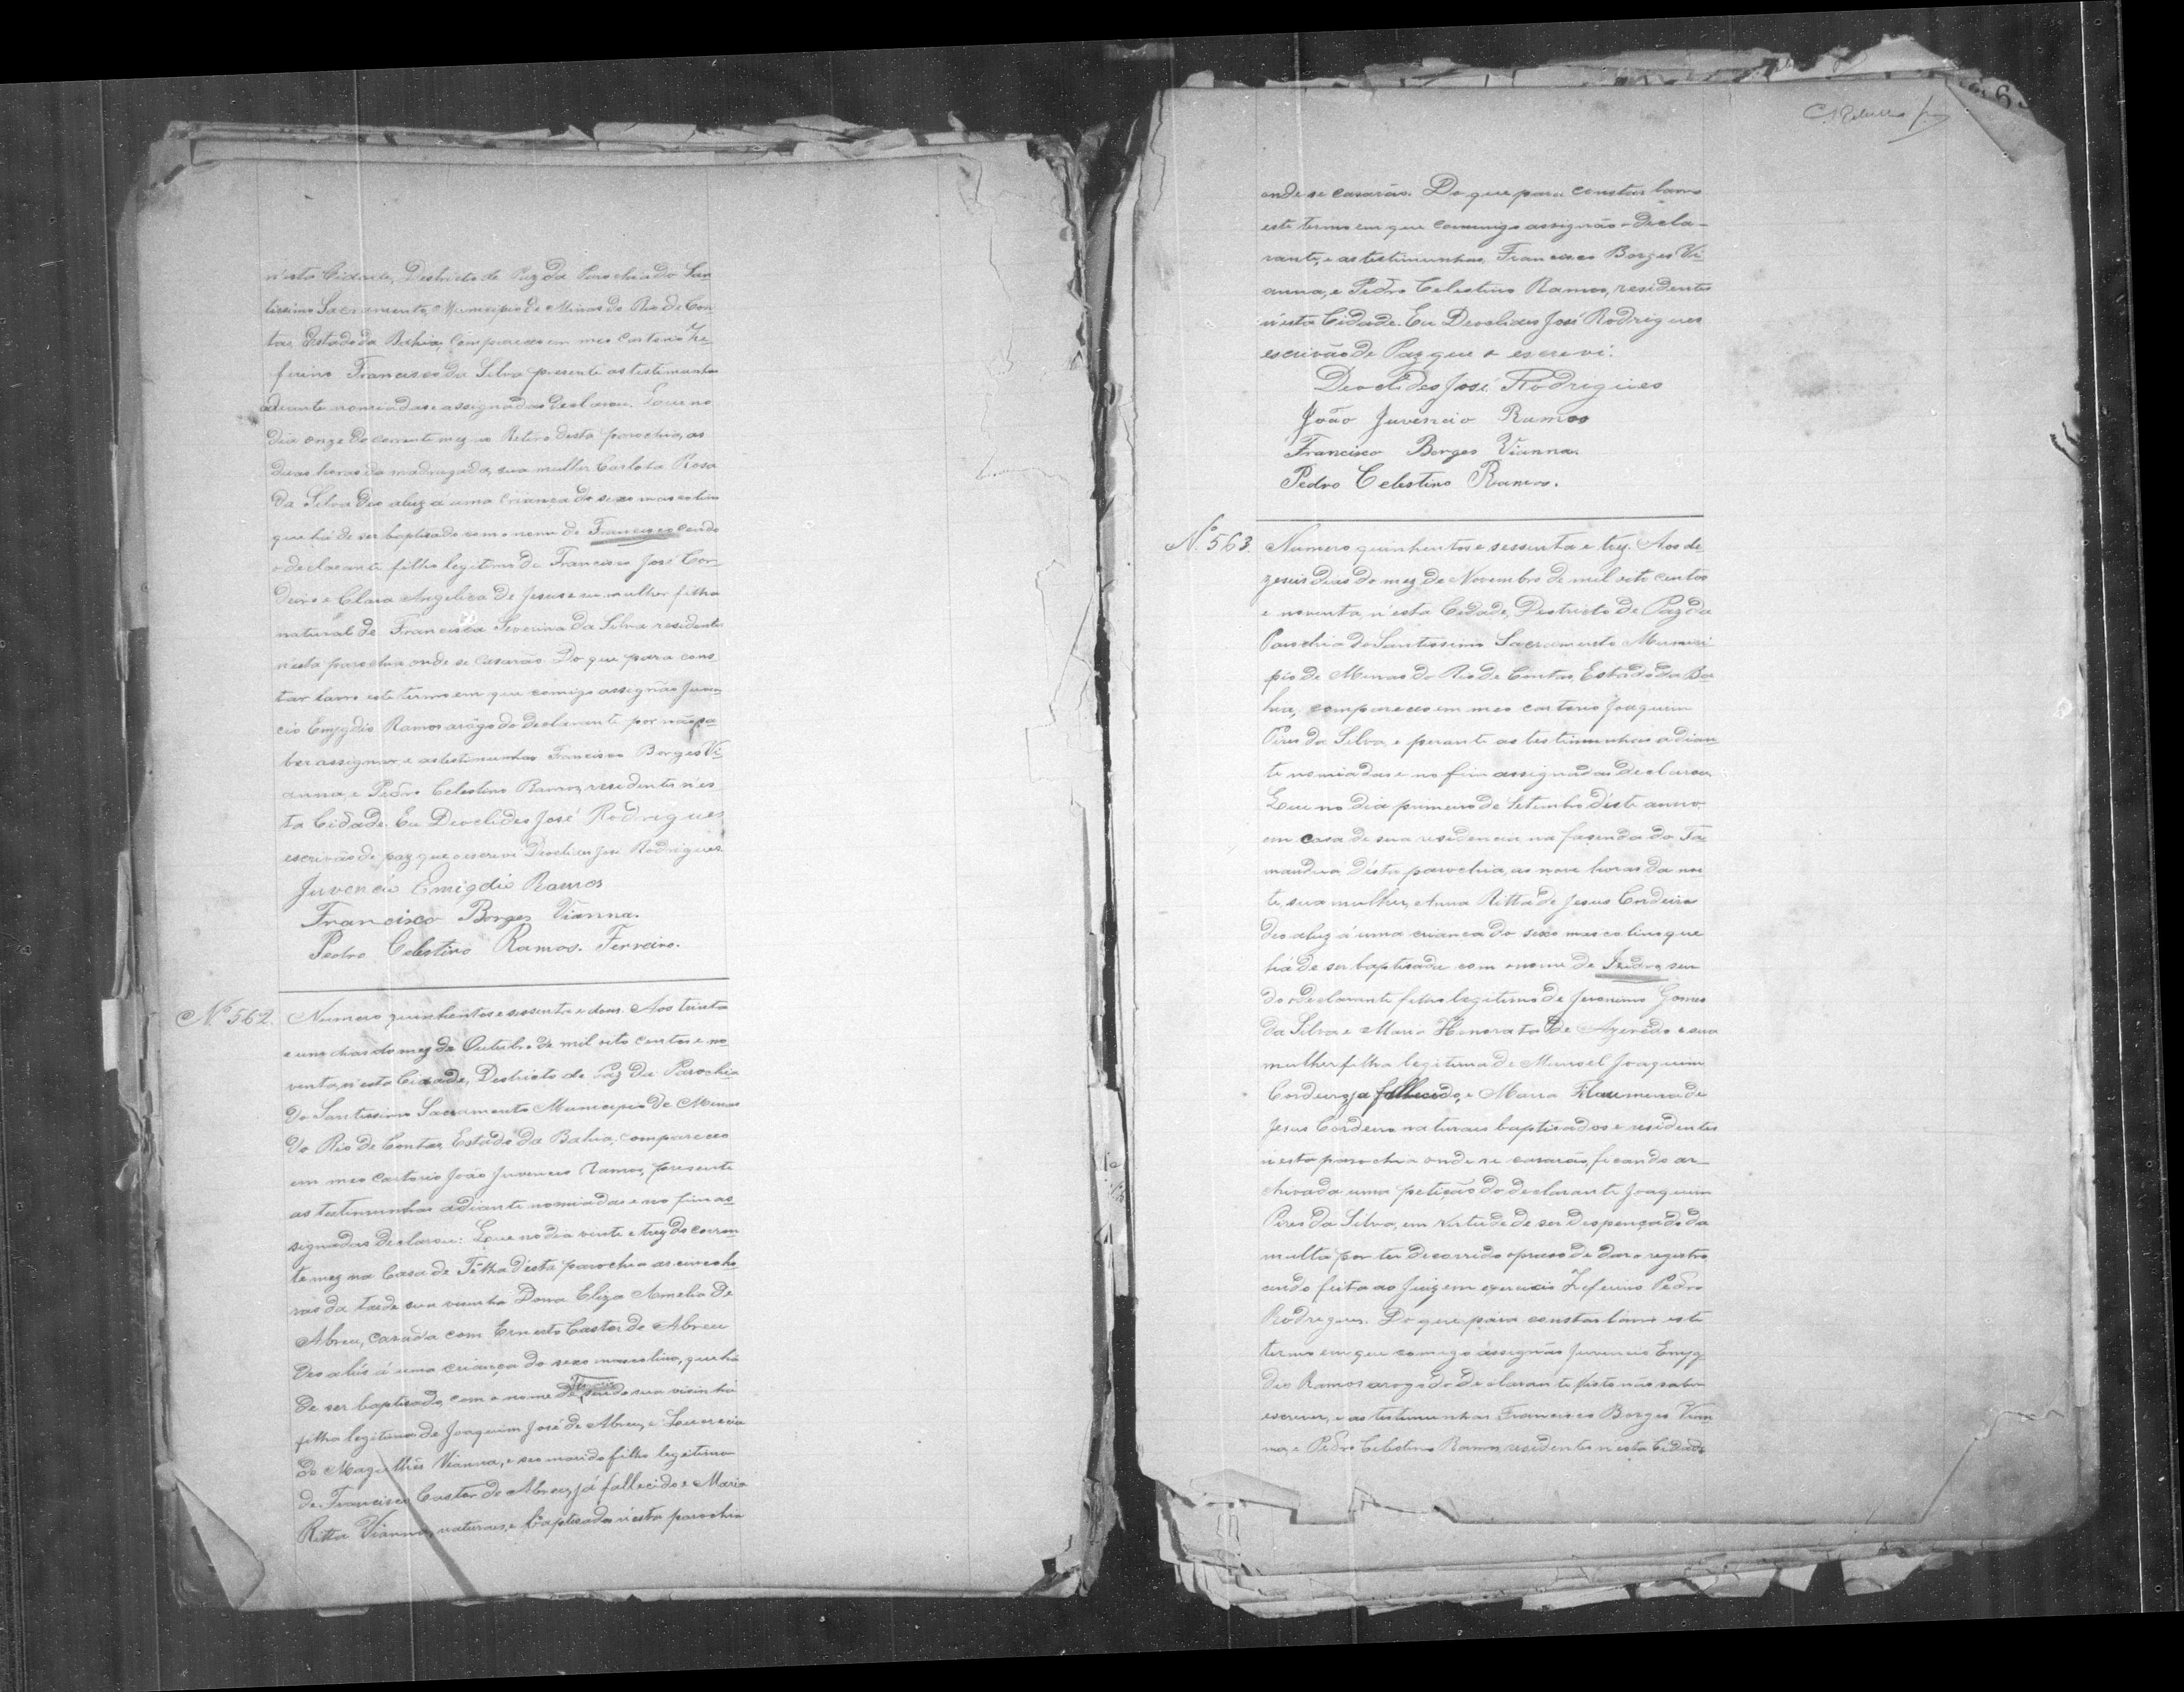 n'esta Cidade, Destricto de Paz da Parochia do San
tissimo Sacramento, Municipio de Minas do Rio de Con
tas, Estado da Bahia, compareceo em meo Cartorio Ze
firino Francisco da Silva presente as testimunhas
adiante nomiadas e assignadas declarou. Que no
dia onze do corrente mez no Retiro desta parochia, as
duas horas da madrugada, sua mulher Carlota Rosa
da Silva deo aluz a uma criança do sexo mascolino
que há de ser baptisado com o nome de Francisco sendo
o declarante filho legitimo de Francisco José Cor
deiro e Clara Angelica de Jesus e sua mulher filha
natural de Francisca Severina da Silva residentes
n'esta parochia onde se casarão. Do que para cons
tar lavro este termo em que comigo assignão Juven
cio Emygdio Ramos arôgo do declarante por não sa
ber assignar e as testimunhas Francisco Borges Vi
anna, e Pedro Celestino Ramos, residentes n'es
ta Cidade. Eu Deoclides José Rodrigues
escrivão de paz que o escrevi Deoclides José Rodrigues.
Juvencio Emigdio Ramos
Francisco Borges Vianna.
Pedro Celestino Ramos. Ferreiro.
Nº 562. Numero quinhentos e sessenta e dous. Aos trinta
e um dias do mez de Outubro de mil oito centos e no
venta, n'esta Cidade, Destricto de Paz da Parochia
do Santissimo Sacramento Municipio de Minas
do Rio de Contas, Estado da Bahia, compareceo
em meo Cartorio João Juvencio Ramos, presente
as testimunhas adiante nomiadas e no fim as
signadas declarou: Que no dia vinte e trez do corren
te mez na Casa de Telha d'esta parochia as cinco ho
ras da tarde sua visinha Dona Eliza Amelia de
Abreu, casada com Ernesto Castor de Abreu
deo alús á uma criança do sexo mascolino, que há
de ser baptisado, com o nome de sendo sua visinha
filha legitima de Joaquim José de Abreu, e Lucrecia
de Magalhês Vianna, e seo marido filho legitimo
de Francisco Castor de Abreu, já fallecido e Maria
Ritta Vianna, naturaes, e baptisados n'esta parochia
onde se casarão. Do que para constar lavro
este termo em que commigo assignão o decla-
rante, e as testimunhas, Francisco Borges Vi
anna, e Pedro Celestino Ramos, residentes
n'esta Cidade. Eu Deoclides José Rodrigues
escrivão de Paz que o escrevi.
Deoclides José Rodrigues
João Juvencio Ramos
Francisco Borges Vianna.
Pedro Celestino Ramos.
Nº 563. Numero quinhentos e sessenta e trez. Aos de
zeseis dias do mez de Novembro de mil oito centos
e noventa, n'esta Cidade, Destricto de Paz da
Parochia do Santissimo Sacramento Munici
pio de Minas do Rio de Contas, Estado da Ba
hia, compareceo em meo cartorio Joaquim
Pires da Silva, e perante as testimunhas adian
te nomiadas e no fim assignadas declarou
Que no dia primeiro de Setembro d'este anno,
em casa de sua residencia na fasenda do Ta
mandua d'ésta parochia, as nove horas da noi
te, sua mulher, Anna Ritta de Jesus Cordeiro
deo aluz á uma crianca do sexo mascolino que
há de ser baptisado com o nome de Izidro, sen
do o declarante filho legitimo de Jeronimo Gomes
da Silva e Maria Honorata de Azevêdo e sua
mulher filha legitima de Manoel Joaquim
Cordeiro, ja fallecido, e Maria de
Jesus Cordeiro naturais baptisados e residentes
n'esta parochia onde se casarão, ficando ar-
chivada uma petição do declarante Joaquim
Pires da Silva, em virtude de ser despençado da
multa por ter decorrido o praso de dar o registro
sendo feita ao Juiz em exercicio Zeferino Pedro
Rodrigues. Do que para constar lavro este
termo em que comigo assignão Juvencio Emyg
dio Ramos arogo do declarante, visto não saber
escrever, e as testimunhas Francisco Borges Vian
na, e Pedro Celestino Ramos residentes n'esta Cidade